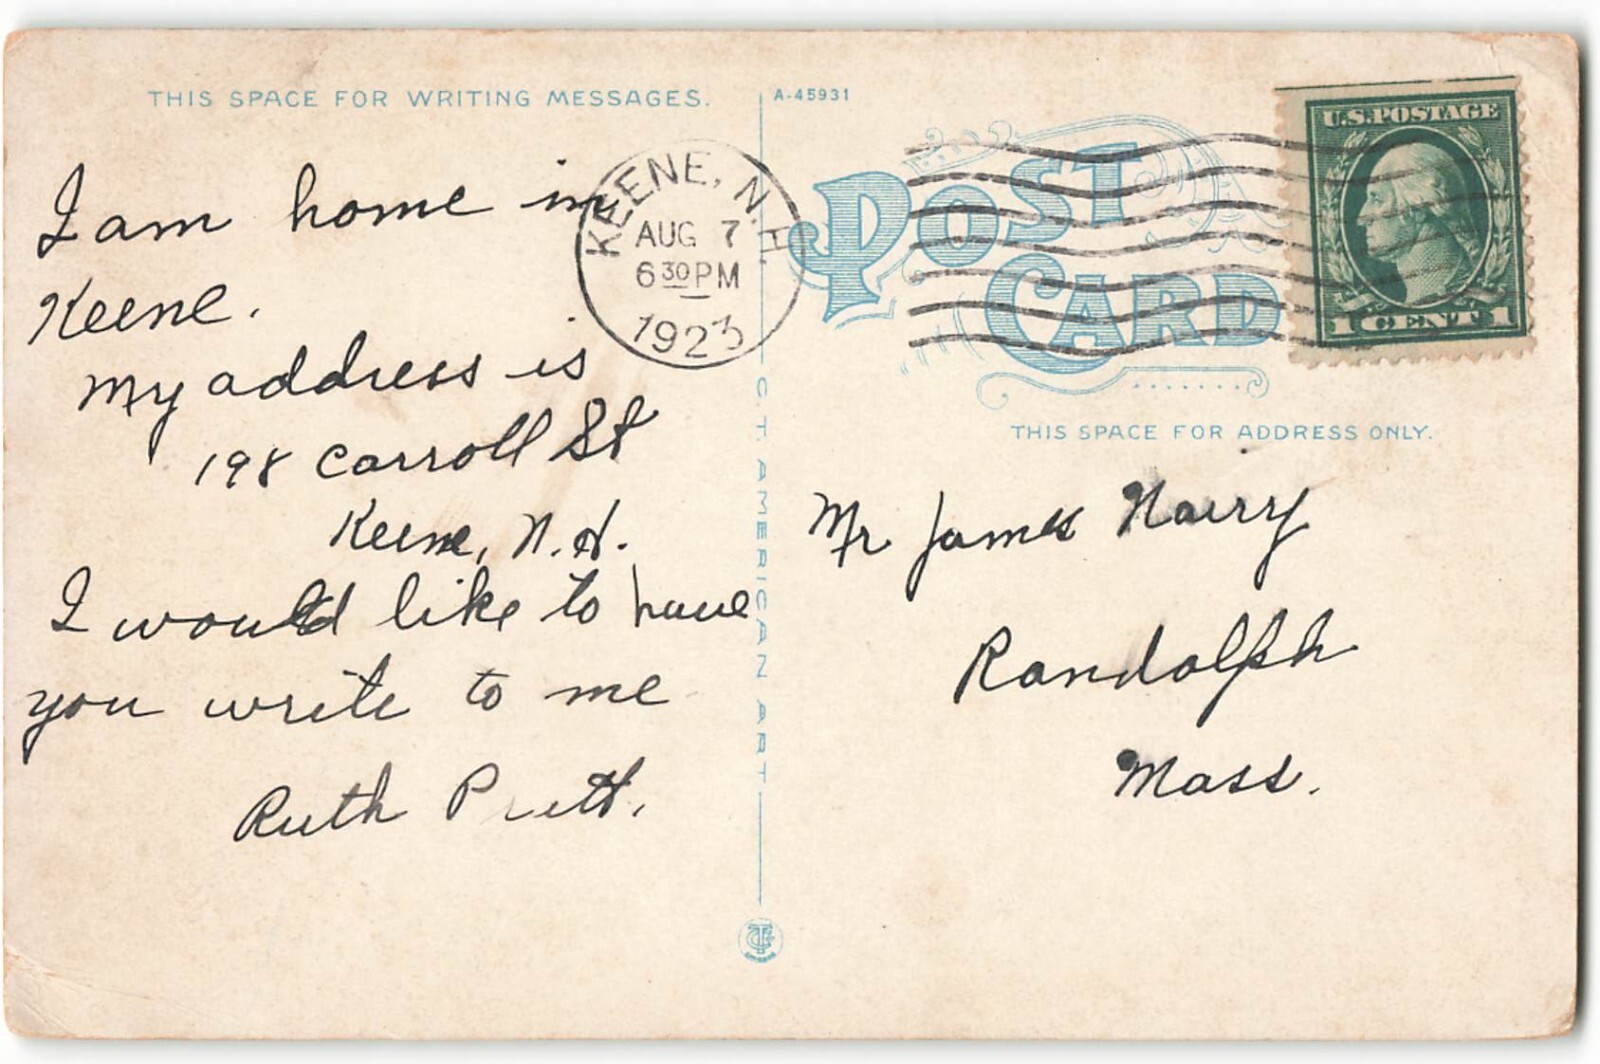 THIS SPACE FOR WRITING MESSAGES.
A-45931
I am home in
Keene.
My address is
198 Carroll St
Keene, N.H.
I would like to have
you write to me
Ruth
KEENE, N.H.
AUG 7
6 30 PM
1923
POST CARD
U.S. POSTAGE
1 CENT 1
THIS SPACE FOR ADDRESS ONLY.
Mr James
Randolph
Mass.
C. T. AMERICAN ART